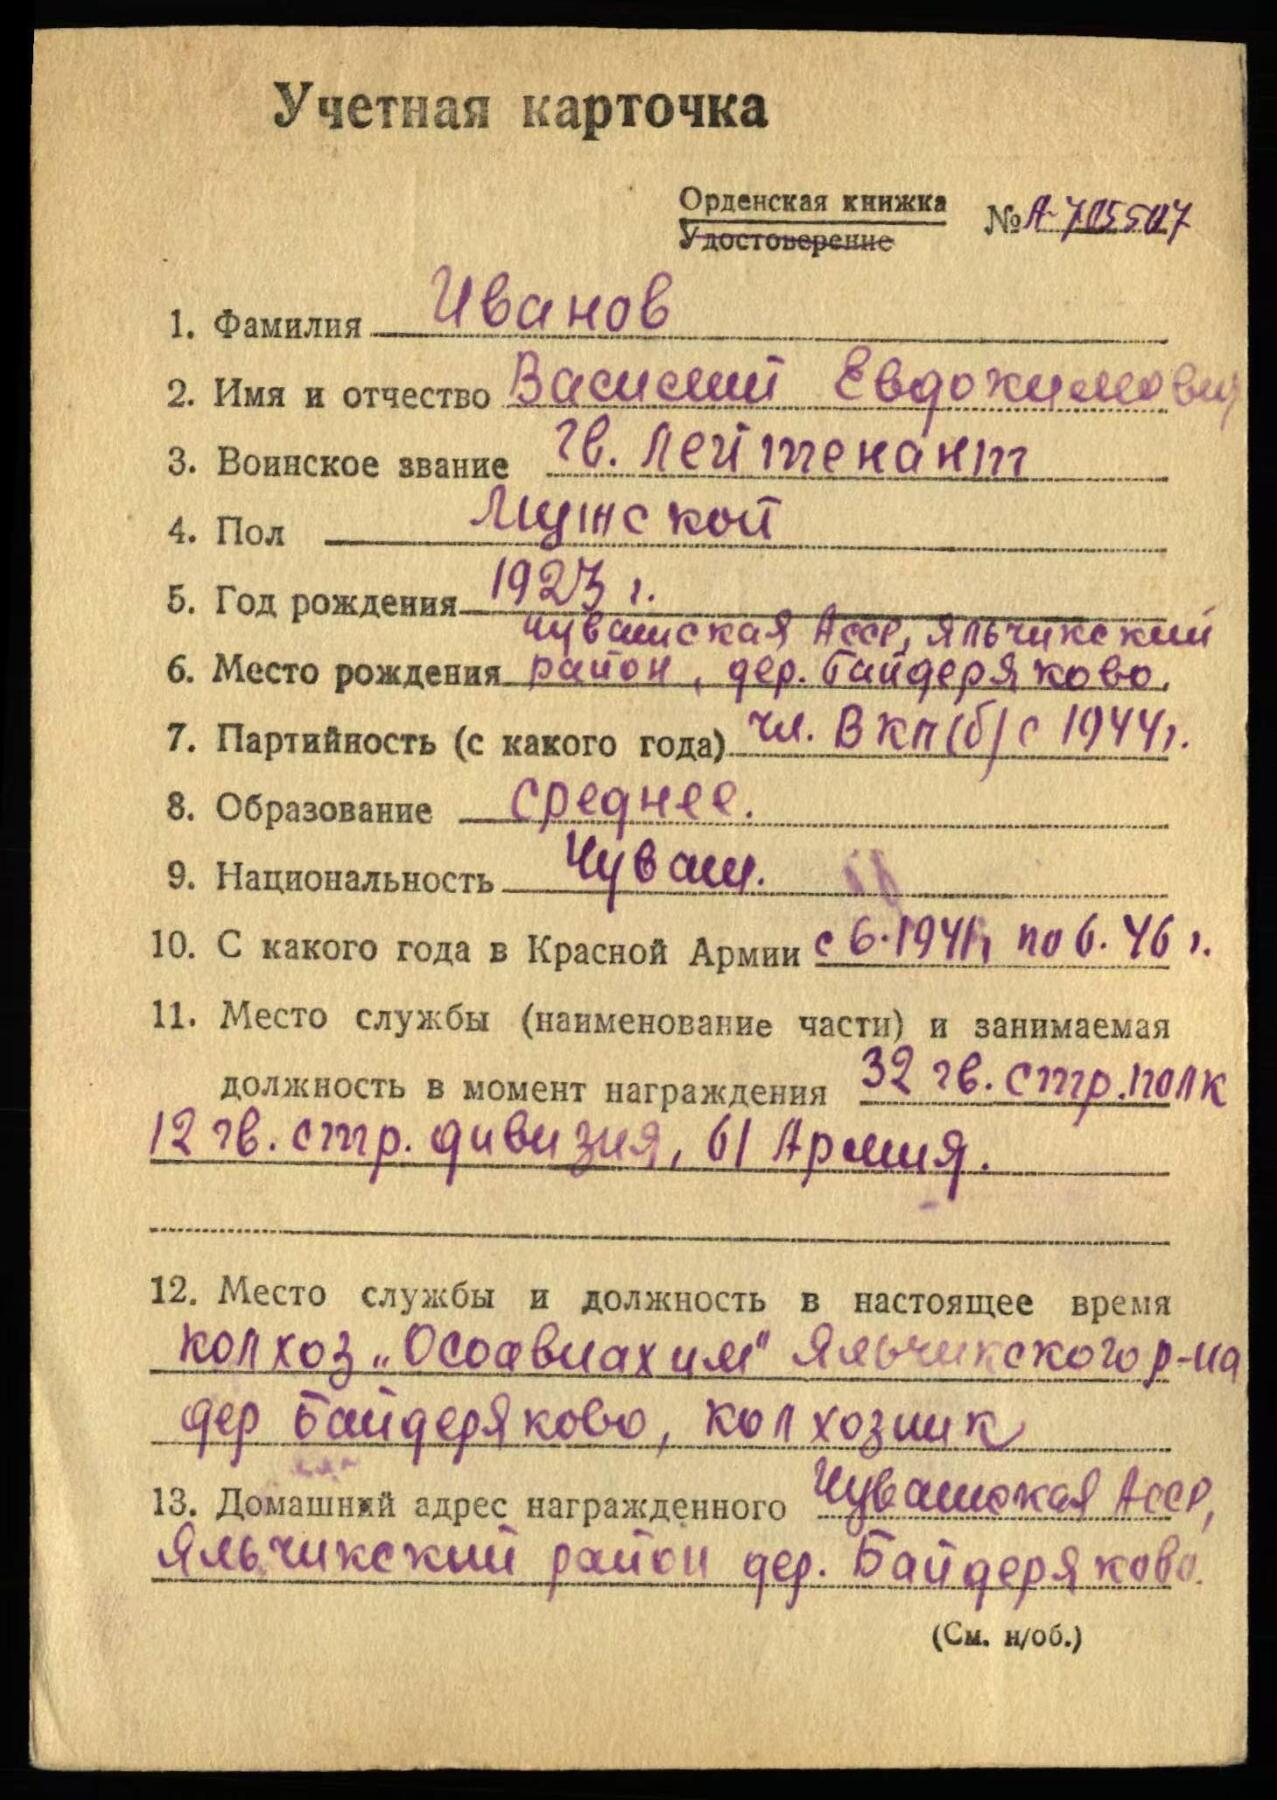 Учетная карточка
Орденская книжка
Удостоверение
№ А-705507
1. Фамилия Иванов
2. Имя и отчество Василий Евдокимович
3. Воинское звание гв. Лейтенант
4. Пол Мужской
5. Год рождения 1923 г.
Чувашская АССР, Яльчикский
6. Место рождения район, дер. Байдеряково.
7. Партийность (с какого года) чл. ВКП(б) с 1944 г.
8. Образование среднее.
9. Национальность Чуваш.
10. С какого года в Красной Армии с 6.1941 г. по 6.46 г.
11. Место службы (наименование части) и занимаемая
должность в момент награждения 32 гв. стр. полк
12 гв. стр. дивизия, 61 Армия.
12. Место службы и должность в настоящее время
колхоз „Осоавиахим" Яльчикского р-на
дер Байдеряково, колхозник
13. Домашний адрес награжденного Чувашская АССР,
Яльчикский район дер. Байдеряково.
(См. н/об.)